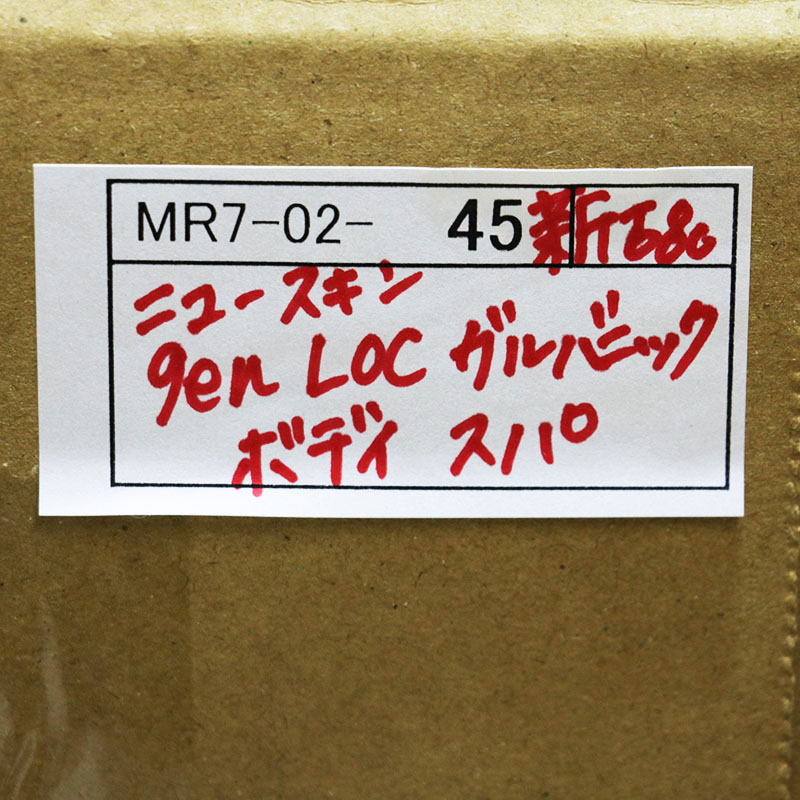 MR7-02- 45 新品80
ニュースキン
gen LOC ガルバニック
ボディ スパ